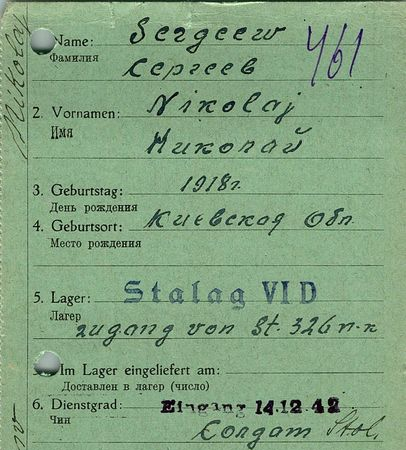 Name: Sergeew 461
Фамилия Сергеев
2. Vornamen: Nikolaj
Имя Николай
3. Geburtstag: 1918г.
День рождения
4. Geburtsort: Киевская Обл.
Место рождения
5. Lager: Stalag VI D
Лагерь
zugang von St. 326
Im Lager eingeliefert am:
Доставлен в лагер (число)
6. Dienstgrad: Eingang 14.12.42
Чин
Nikolaj